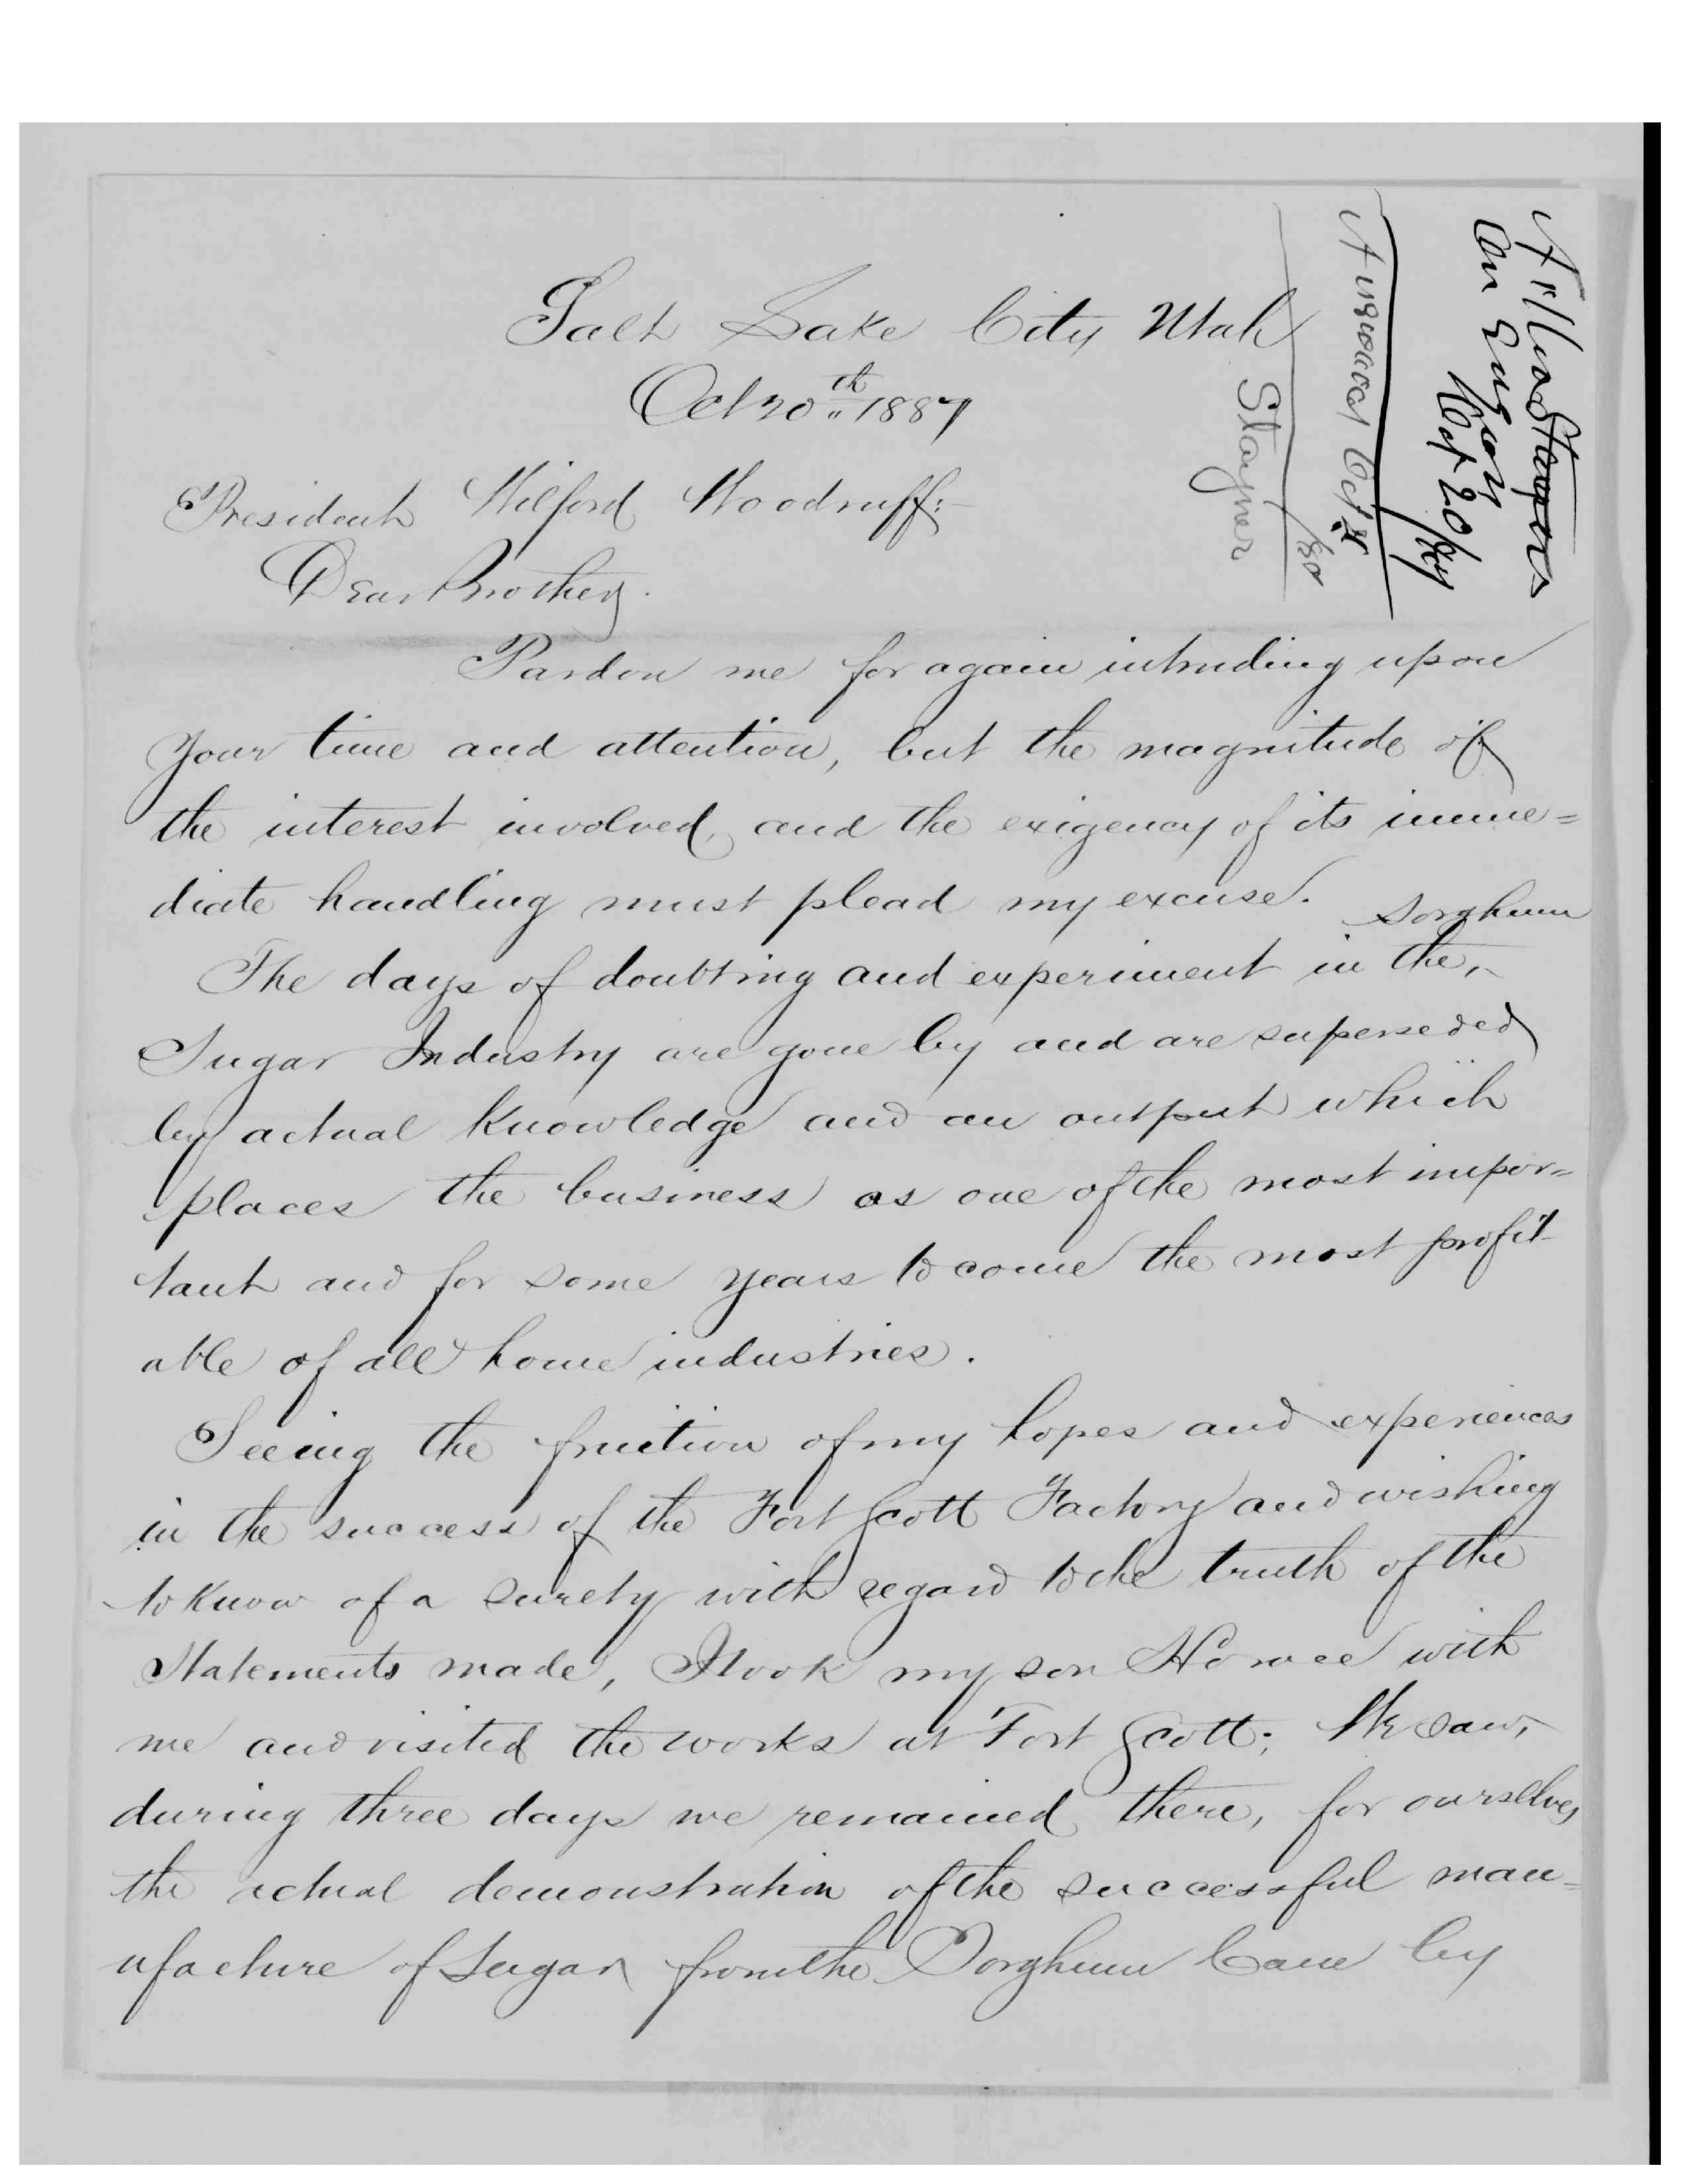 Salt Lake City Utah
Oct 20th 1887
President Wilford Woodruff:-
Dear Brother.
Pardon me for again intruding upon
your time and attention, but the magnitude of
the interest involved, and the exigency of its imme=
diate handling must plead my excuse.
Sorghum
The days of doubting and experiment in the ^
Sugar Industry are gone by and are superseded
by actual knowledge and an output which
places the business as one of the most impor=
tant and for some years to come the most profit-
able of all home industries.
Seeing the fruition of my hopes and experiences
in the success of the Fort Scott Factory and wishing
to know of a surety with regard to the truth of the
Statements made, I took my son Horace with
me and visited the works at Fort Scott; We saw,
during three days we remained there, for ourselves
the actual demonstration of the successful man=
ufacture of Sugar from the Sorghum Cane by
A
On Sugar
Oct 20/87
Answered Oct
Stayner